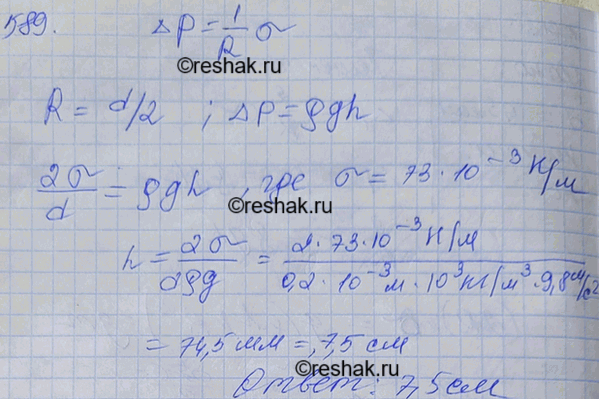 589. ΔP = 1/R σ
©reshak.ru
R = d/2 ; ΔP = ρgh
2σ/d = ρgh , где σ = 73·10⁻³ Н/м
©reshak.ru
h = 2σ/dρg = 2·73·10⁻³ Н/м / 0,2·10⁻³ м·10³ кг/м³·9,8 м/с²
= 74,5 мм = 7,5 см
©reshak.ru
Ответ: 7,5 см